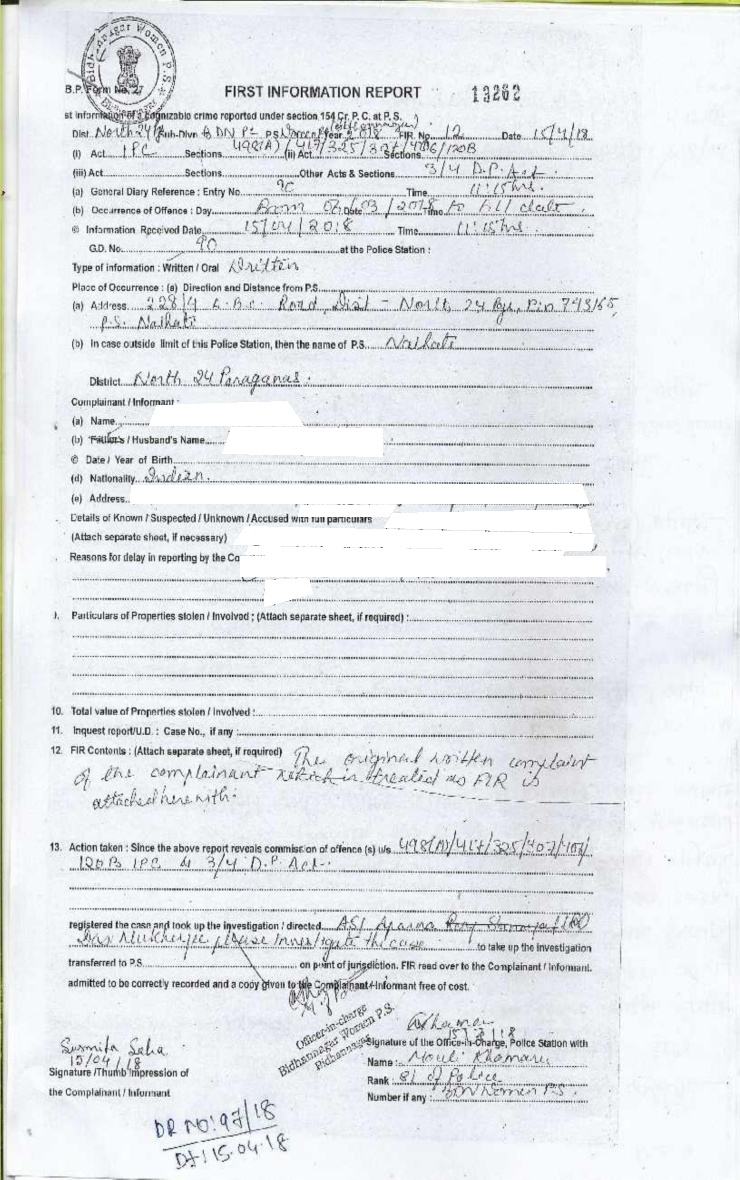 Bidhannagar Women P.S.
B.P. Form No. 27
FIRST INFORMATION REPORT 13262
st Information of a cognizable crime reported under section 154 Cr. P. C. at P. S.
Dist. North 24 Sub-Divn. BDN PC P.S. Women PS Year 2018 FIR. No. 12 Date 15/4/18
(i) Act IPC Sections 498(A)/417/325/307/406/120B (ii) Act Sections
(iii) Act Sections Other Acts & Sections 3/4 D.P. Act.
(a) General Diary Reference : Entry No. 90 Time 11:15 hrs.
(b) Occurrence of Offence : Day From Date /03/2018 Time to till date.
© Information Received Date 15/04/2018 Time 11:15 hrs
G.D. No. 90 at the Police Station :
Type of information : Written / Oral Written
Place of Occurrence : (a) Direction and Distance from P.S.
(a) Address 228/4 R.B.C. Road, Dist - North 24 Pgs, Pin 743165,
P.S. Naihati
(b) In case outside limit of this Police Station, then the name of P.S. Naihati
District North 24 Paraganas.
Complainant / Informant :
(a) Name
(b) Father's / Husband's Name
© Date / Year of Birth
(d) Nationality Indian.
(e) Address
Details of Known / Suspected / Unknown / Accused with full particulars
(Attach separate sheet, if necessary)
Reasons for delay in reporting by the Co
). Particulars of Properties stolen / Involved ; (Attach separate sheet, if required) :
10. Total value of Properties stolen / Involved :
11. Inquest report/U.D. : Case No., if any :
12. FIR Contents : (Attach separate sheet, if required) The original written complaint
of the complainant which is treated as FIR is
attached herewith.
13. Action taken : Since the above report reveals commission of offence (s) u/s. 498(A)/417/325/307/406/
120B IPC & 3/4 D.P. Act.
registered the case and took up the investigation / directed ASI Aparna
Mukherjee please investigate the case to take up the investigation
transferred to P.S. on point of jurisdiction. FIR read over to the Complainant / Informant.
admitted to be correctly recorded and a copy given to the Complainant / Informant free of cost.
Officer-in-charge
Bidhannagar Women P.S.
Bidhannagar
15/4/18
Susmita Saha
15/04/18
Signature of the Office-in-Charge, Police Station with
Signature /Thumb Impression of
Name : Mouli Khamaru
the Complainant / Informant
Rank : SI of Police
Number if any : BDN Women P.S.
DR NO: 97/18
Dt: 15.04.18